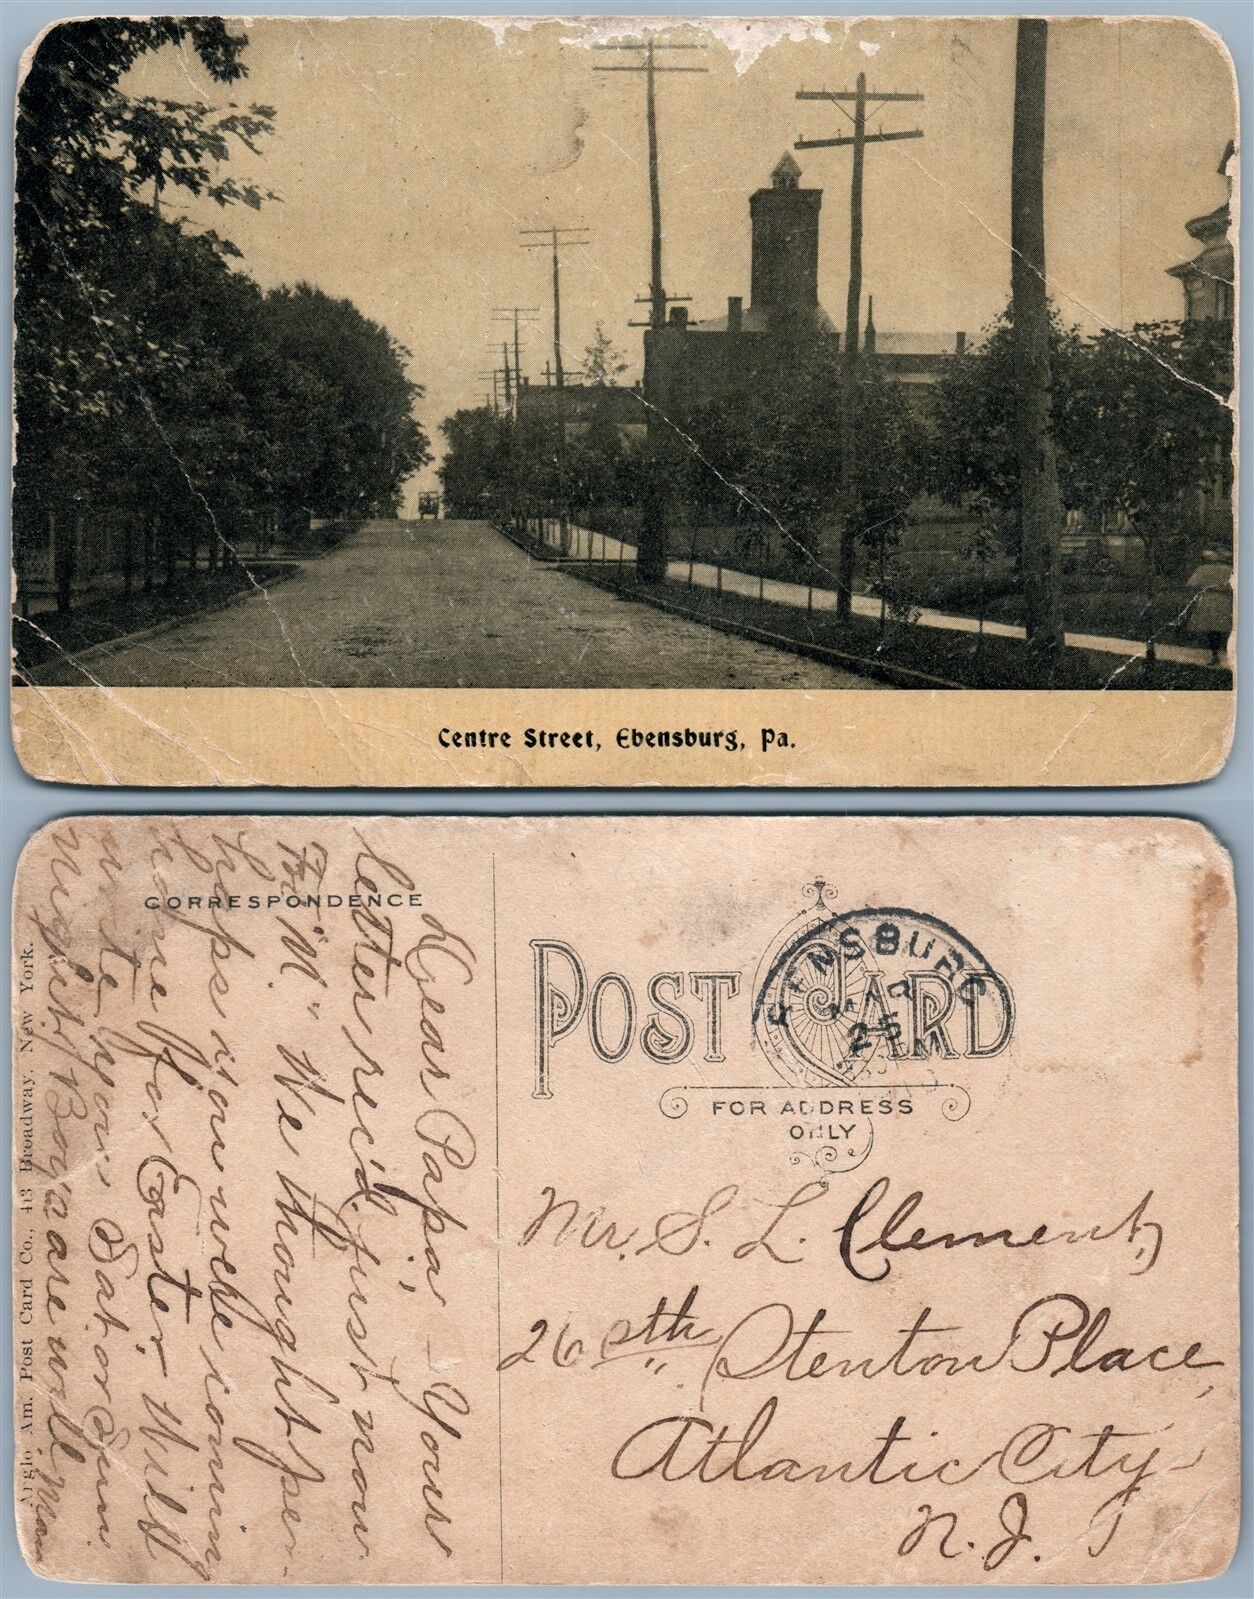 Centre Street, Ebensburg, Pa.
CORRESPONDENCE
Dear Papa:– Your
letter rec'd. just now
For "M". We thought per-
haps you were coming
home for Easter. Will
write you Sat. or Sun.
night. Boys are well
Anglo Am. Post Card Co., 43 Broadway, New York.
POST CARD
FOR ADDRESS
ONLY
EBENSBURG
MAR
25
Mr. S. L. Clement,
26 Sth Stenton Place,
Atlantic City
N. J.